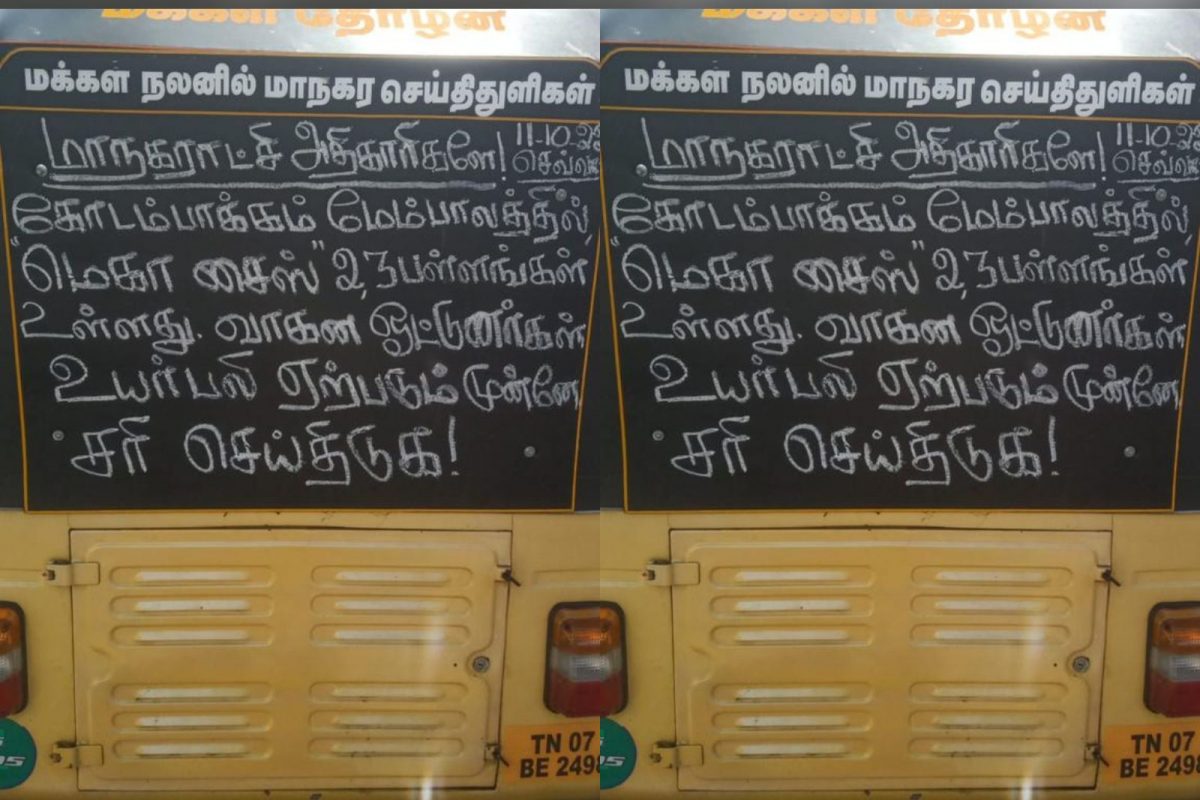 மக்கள் தோழன்
மக்கள் நலனில் மாநகர செய்திதுளிகள்
மாநகராட்சி அதிகாரிகளே! 11-10-22
கோடம்பாக்கம் மேம்பாலத்தில்,
"மெகா சைஸ்" 2,3 பள்ளங்கள்
உள்ளது. வாகன ஓட்டுனர்கள்
உயர்பலி ஏற்படும் முன்னே
சரி செய்திடுக!
TN 07
BE 2498
மக்கள் தோழன்
மக்கள் நலனில் மாநகர செய்திதுளிகள்
மாநகராட்சி அதிகாரிகளே! 11-10-22
கோடம்பாக்கம் மேம்பாலத்தில்,
"மெகா சைஸ்" 2,3 பள்ளங்கள்
உள்ளது. வாகன ஓட்டுனர்கள்
உயர்பலி ஏற்படும் முன்னே
சரி செய்திடுக!
TN 07
BE 2498